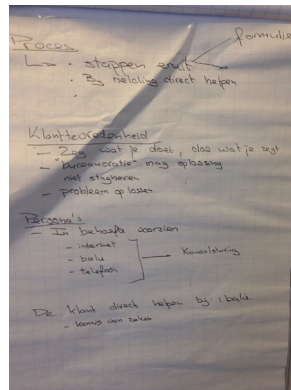 Proces
formulie
L> • stappen eruit
• By melding direct helpen
•
Klanttevredenheid
- Zeg wat je doet, doe wat je zegt
- "bureaucratie" mag oplossing
niet stagneren
- probleem oplossen
Persona's
- In behoefte voorzien
- internet
- balie
- telefoon
Kanaalsturing
De klant direct helpen bij balie
- kennis van zaken